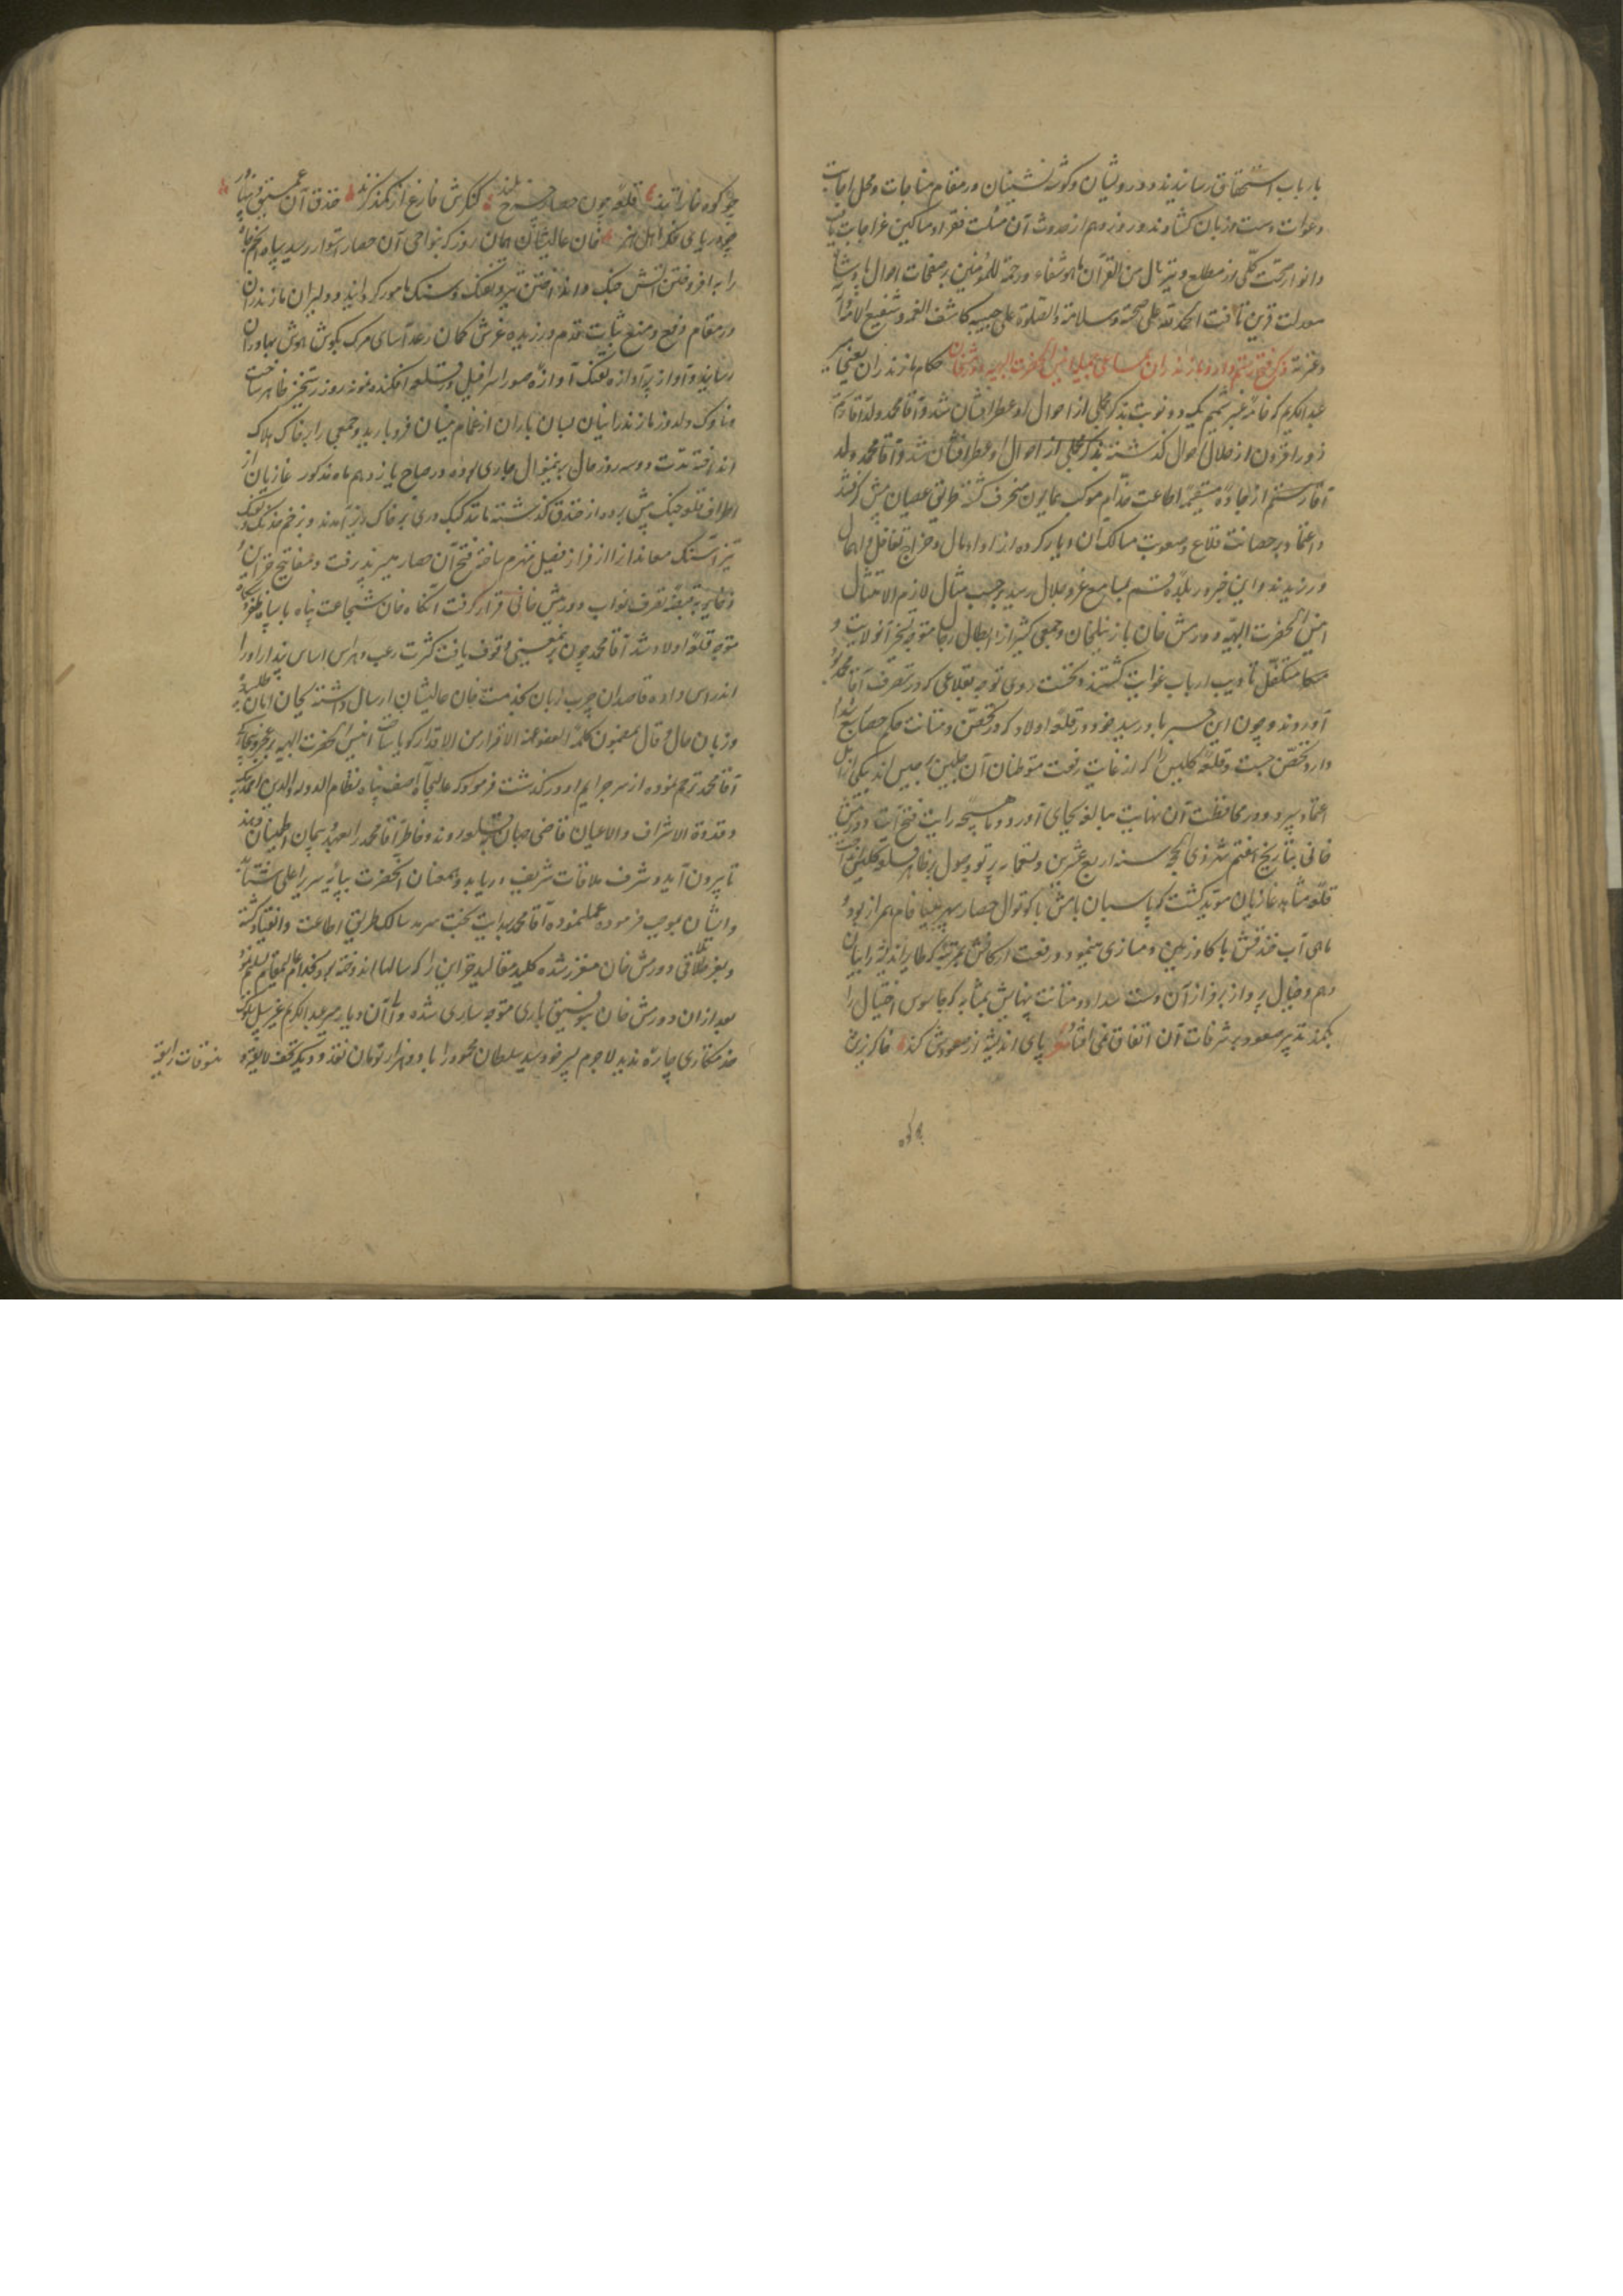 بارباب استحقاق رسانیدند و درویشان و گوشه نشینان در مقام مناجات و محل اجابت
دعوات دست و زبان گشادند و روز دوم از حدوث آن مسلت فقرا و مساکین عز اجابت یافت
و انوار صحت کلی از مطلع و ننزل من القرآن ما هو شفاء و رحمة للمؤمنین بر صفحات احوال پادشاه
معدلت قرین تافت الحمد لله علی صحته و سلامته و الصلوة علی حبیبه کاشف الغمه و شفیع الامة و آله
و عترته ذکر فتح رستمدار و مازندران حکام مازندران یعنی امیر
عبد الکریم که خامه عنبر شمیم یک دو نوبت بذکر مجملی از احوال او عطرافشان شد و آقا محمد ولد آقا رستم
روز افزون از خلال احوال گذشته بذکر مجملی از احوال او عطرافشان شد و آقا محمد ولد
آقا رستم از جاده مستقیمه اطاعت خدام موکب همایون منحرف گشته طریق عصیان پیش گرفتند
و اعتماد بر حصانت قلاع و صعوبت مسالک آن دیار کرده از ادا و مال و خراج تغافل و اهمال
ورزیدند و این خبر در بلده قم بمسامع عز و جلال رسید بموجب مثال لازم الامتثال
انیس الحضرت البهیه دورمش خان با زینلخان و جمعی کثیر از ابطال رجال متوجه تسخیر آنولایت و
متکفل تادیب ارباب غوایت گشتند و نخست روی توجه بقلاعی که در تصرف آقا محمد بود
آوردند و چون این خبر باو رسید خود در قلعه اولاد که در تحصن و متانت حکم حصار سبع شداد
دارد تحصن جست و قلعه کلیس را که از غایت رفعت متوطنان آن جلیس برجیس اند بیکی از اهل
اعتماد سپرد و در محافظت آن نهایت مبالغه بجای آورد و ماهیچه رایت فتح آیت دورمش
خانی بتاریخ هفتم شهر ذی الحجه سنه اربع عشرین و تسعمایه پرتو وصول بر ظاهر قلعه کلیس انداخت
قلعه مشاهد غازیان مؤید گشت که پاسبان بامش با کوتوال حصار سپهر مینا فام همراز بود و
ماهی آب خندقش با گاو زمین دمسازی مینمود و رفعت ارکانش بمرتبه که طایر اندیشه را ببال
وهم و خیال پرواز بر فراز آن دست نداد و متانت بنیانش بمثابه که جاسوس اختیال را
بکمند تدبیر صعود بر شرفات آن اتفاق نمی افتاد پای اندیشه از صعودش کند خاکریزی
چو کوه خارا تند قلعه چون حصار چرخ بلند کنگرش فارغ از کمند گزند خندق آن عمیق و پهناور
چو دریای فکر اهل هنر خان عالیشان همان روز که بنواحی آن حصار استوار رسید سپاه انجم شمار
را به افروختن آتش جنگ و انداختن تیر و تفنگ و سنگ مامور گردانید و دلیران مازندران
در مقام دفع و منع ثابت قدم ورزیده غرش کمان رعد آسای مرگ بگوش هوش بهادران
رسانید و آواز پرآوازه تفنگ آوازه صور اسرافیل در قلعه افکنده نمونه روز رستخیز ظاهر ساخت
و ناوک دلدوز مازندرانیان بسان باران از غمام نیسان فرو بارید و جمعی را بر خاک هلاک
انداخته مدت دو سه روز حال برینمنوال جاری بوده در صباح یازدهم ماه مذکور غازیان از
اطراف قلعه جنگ پیش برده از خندق گذشته مانند کبک دری بر خاک ریز آمدند و بزخم خدنگ و تفنگ
تیز آهنگ معاندان را از فراز فصیل منهزم ساخته فتح آن حصار میسر پذیرفت و مفاتیح خزاین و
ذخایر به قبضه تصرف نواب دورمش خانی قرار گرفت آنگاه خان شجاعت پناه با سپاه
متوجه قلعه اولاد شد آقا محمد چون برینمعنی وقوف یافت کثرت رعب و هراس اساس پندار او را
اندراس داده قاصدان چرب زبان بخدمت خان عالیشان ارسال داشته بجان امان طلبید
و زبان حال و قال بمضمون کلمه العفو عند الاقرار من الاقتدار گویا ساخت انیس الحضرت البهیه بر عجز و بیچارگی
آقا محمد ترحم نموده از سر جرایم او درگذشت فرمود که عالیجاه آصف پناه نظام الدوله والدین
و قدوة الاشراف و الاعیان قاضی جهان بقلعه روند و خاطر آقا محمد را بعهد و پیمان اطمینان دهند
تا بیرون آید و شرف ملاقات شریف دریابد و بهمعنان آنحضرت بپایه سریر اعلی شتابد
و ایشان بموجب فرموده عمل نموده آقا محمد بهدایت بخت سرمد سالک طریق اطاعت و انقیاد گشته
و بعز ملاقات دورمش خان معزز شده کلید مقالید خزاین را که سالها اندوخته بود بخدام عالیمقام تسلیم نمود
بعد از آن دورمش خان بتوفیق باری متوجه ساری شده والی آن دیار میر عبد الکریم غیر سبیل
خدمتکاری چاره ندید لاجرم پسر خود سید سلطان محمود را با دو هزار تومان نقد و دیگر تحف لایقه و
تنسوقات رایقه